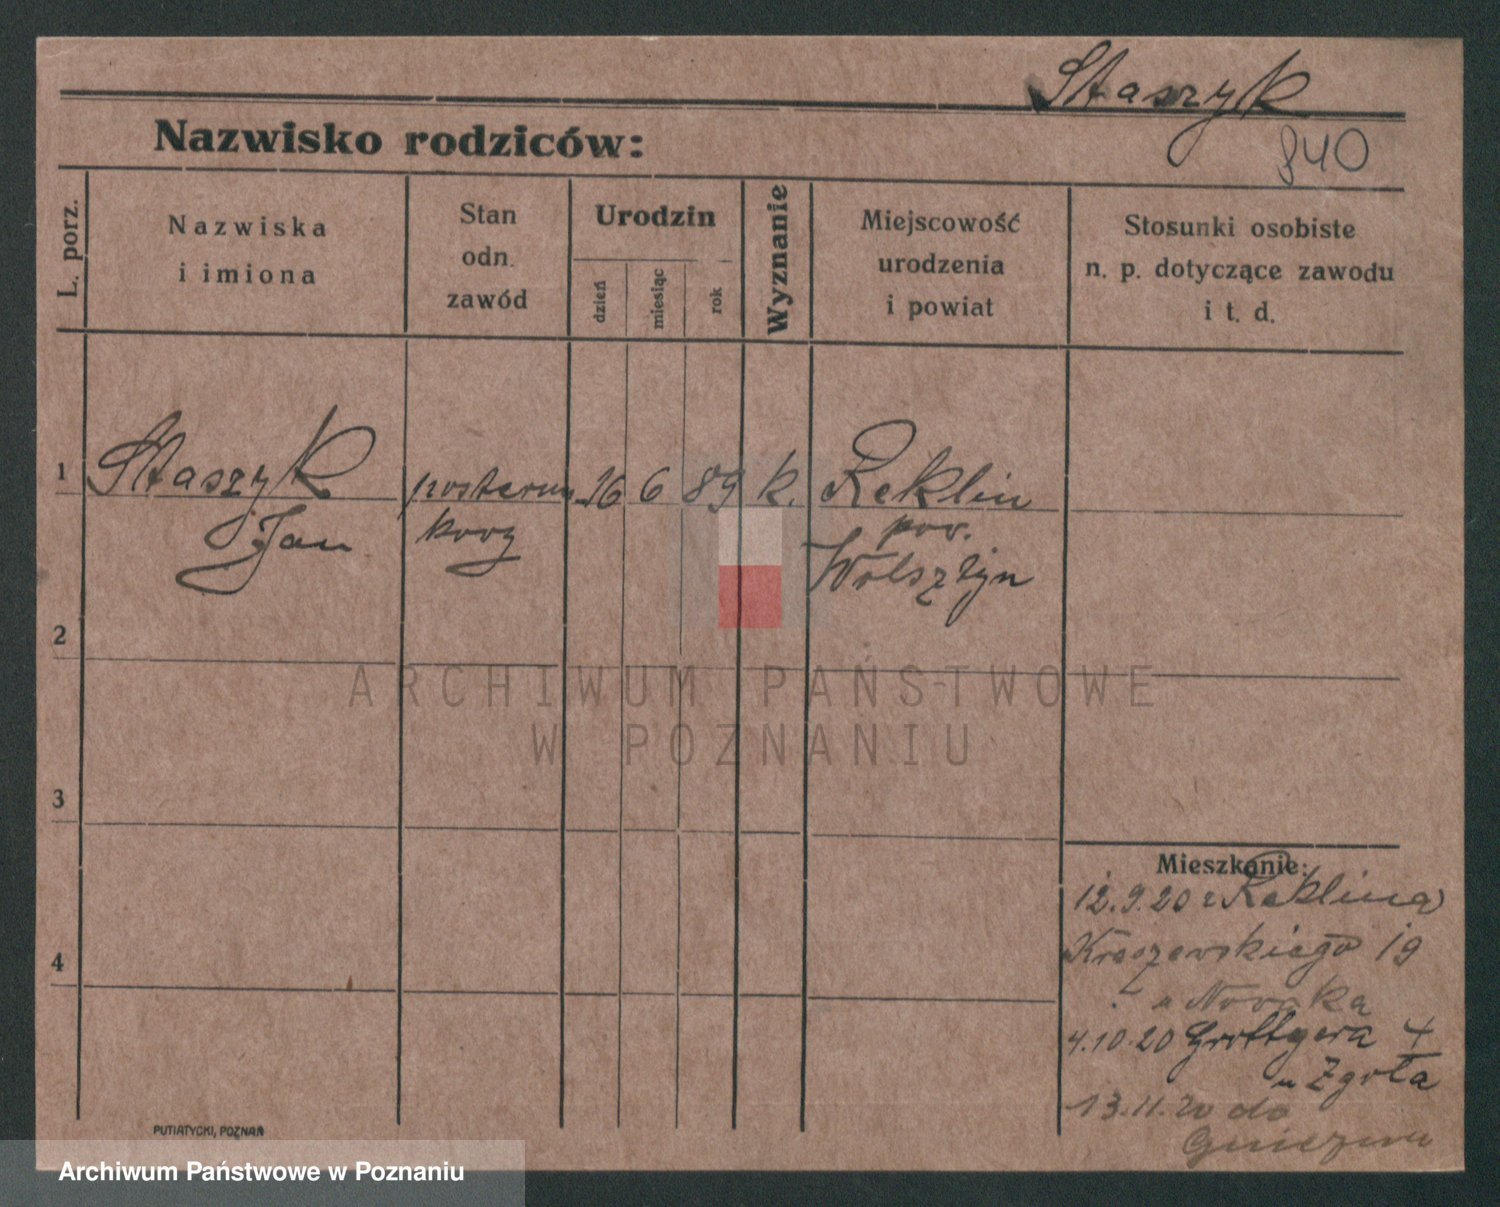 Staszyk
840
Nazwisko rodziców:
L. porz.
Nazwiska
i imiona
Stan
odn.
zawód
Urodzin
dzień
miesiąc
rok
Wyznanie
Miejscowość
urodzenia
i powiat
Stosunki osobiste
n. p. dotyczące zawodu
i t. d.
1
Staszyk posterun 16 6 89 k. Reklin
Jan kowy pow.
Wolsztyn
2
3
4
Mieszkanie:
12.9.20 z Reklina
Kraszewskiego 19
u Nowaka
4.10.20 Grottgera 4
u Zgoła
13.11.20 do
Gniezna
PUTIATYCKI, POZNAŃ
ARCHIWUM PAŃSTWOWE
W POZNANIU
Archiwum Państwowe w Poznaniu